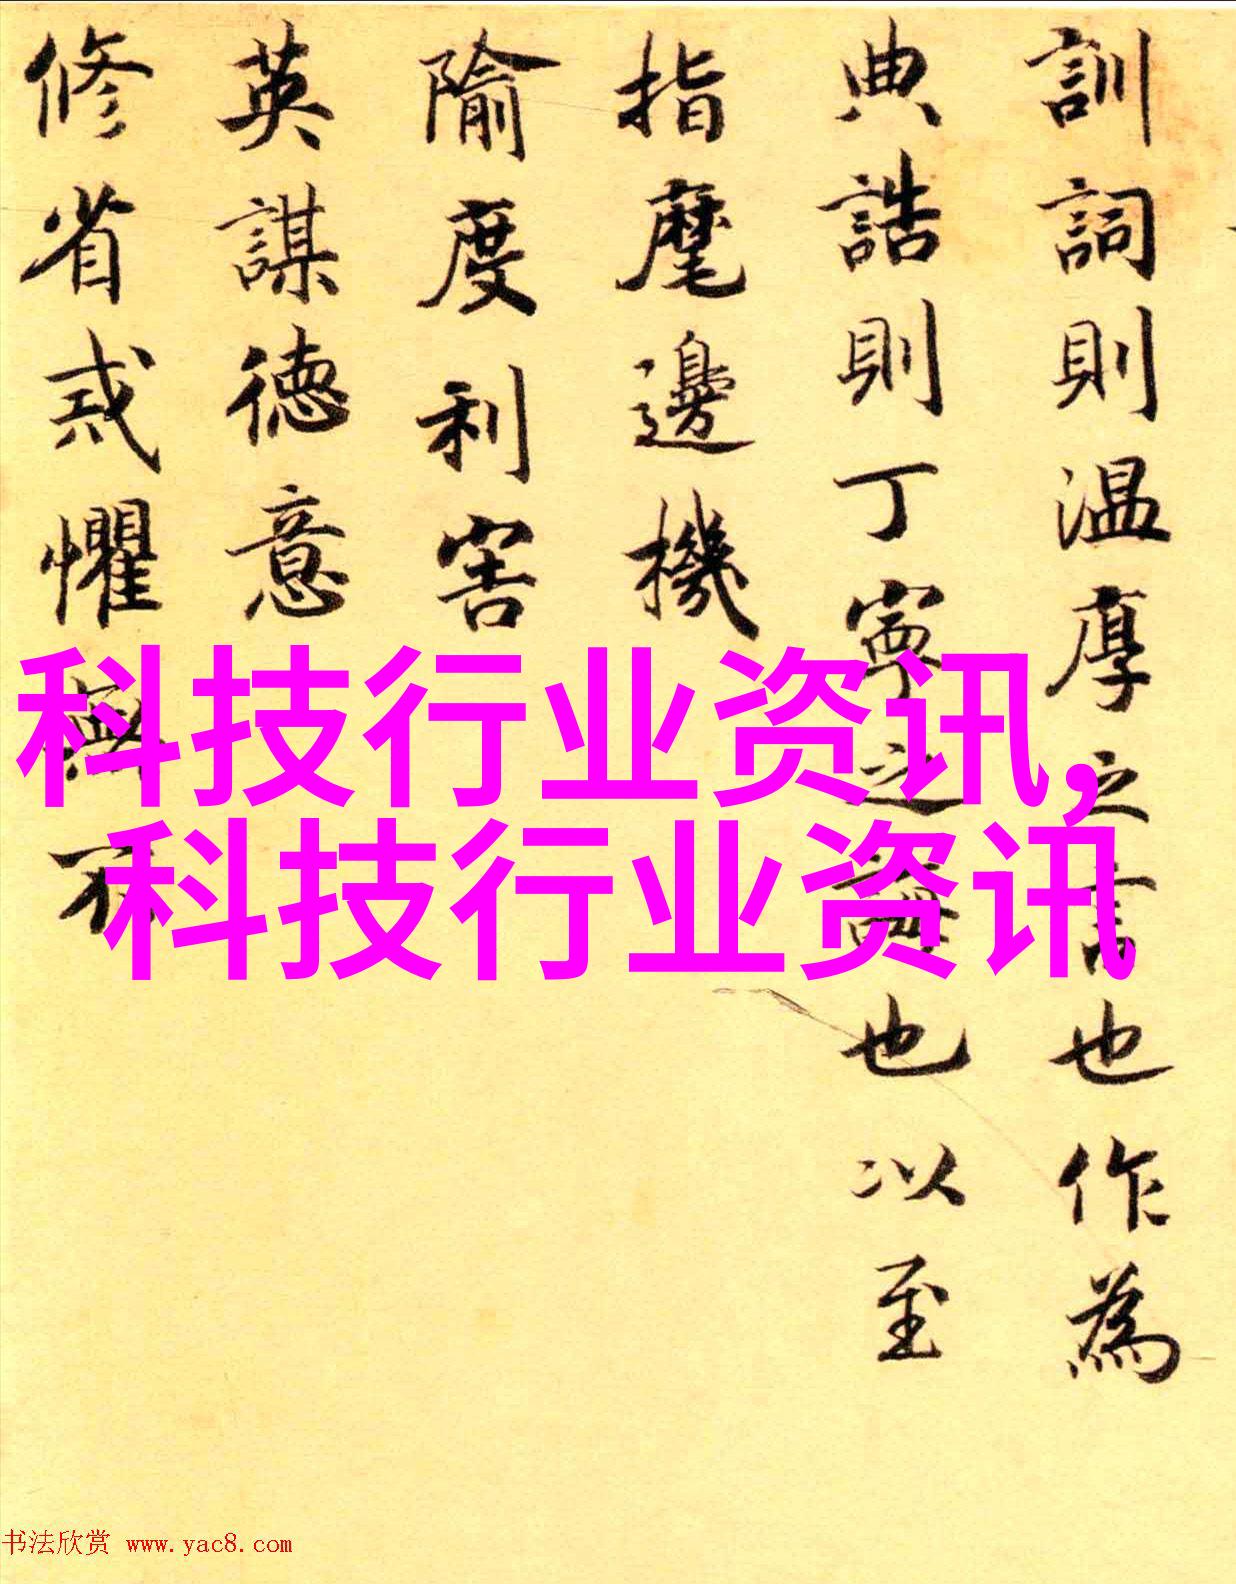 訓詞則温厚之言也作為
典誥則丁寧之誨也以至
指麾邊機
隃度利害
英謀德意
修省戒懼無不
科技行业资讯,
科技行业资讯
书法欣赏 www.yac8.com